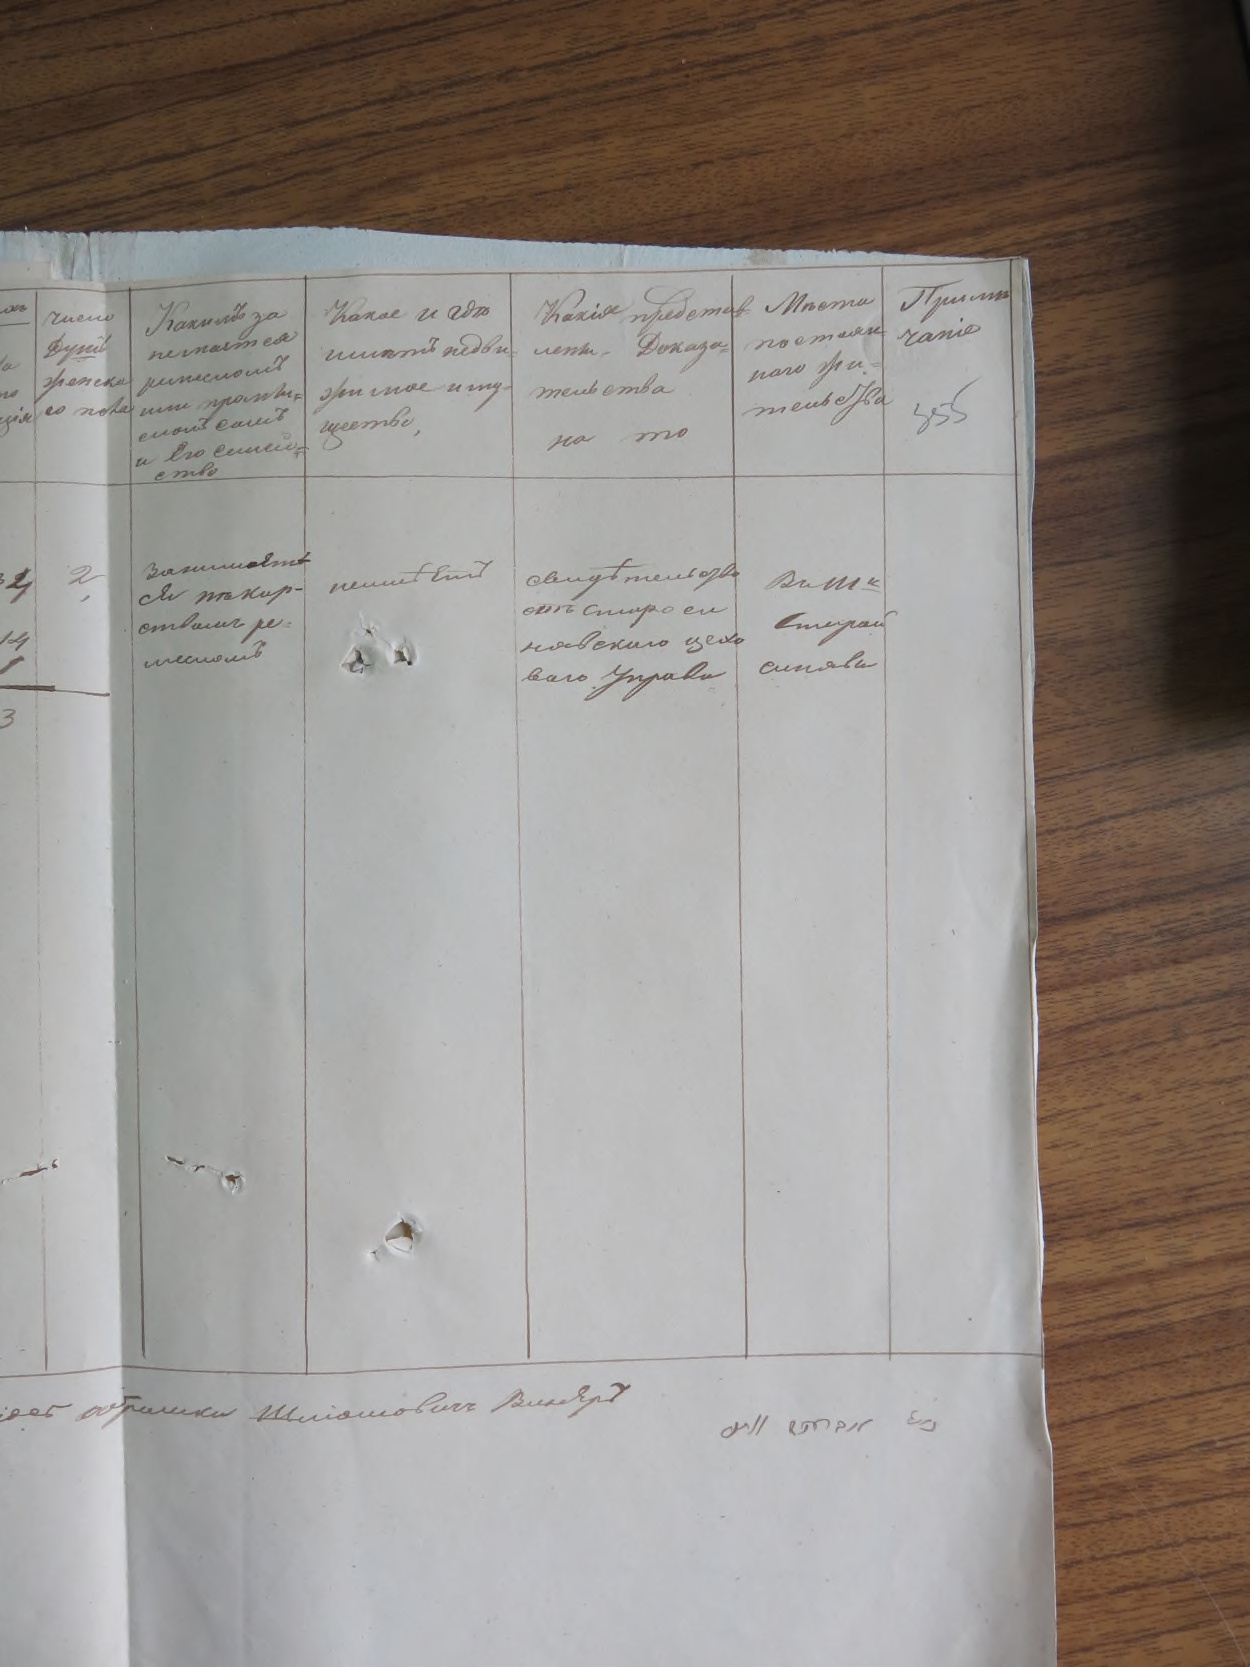 число
Душъ
женска
го пола
Какимъ за
нимается
ремесломъ
или промы=
сломъ самъ
и Его семей=
ство
Какое и гдѣ
имѣетъ недви-
жимое иму-
щество,
Какія представ-
лены Доказа=
тельства
на то
Мѣста
постоян
наго жи=
тельства
Примѣ
чаніе
2
Занимает
ся
ствомъ ре=
месломъ
неимѣетъ
свидѣтельство
отъ Старо си
нявского цехо
ваго Управа
Въ М:
Старой
синяви
14
3
Шліомовичъ Винеръ